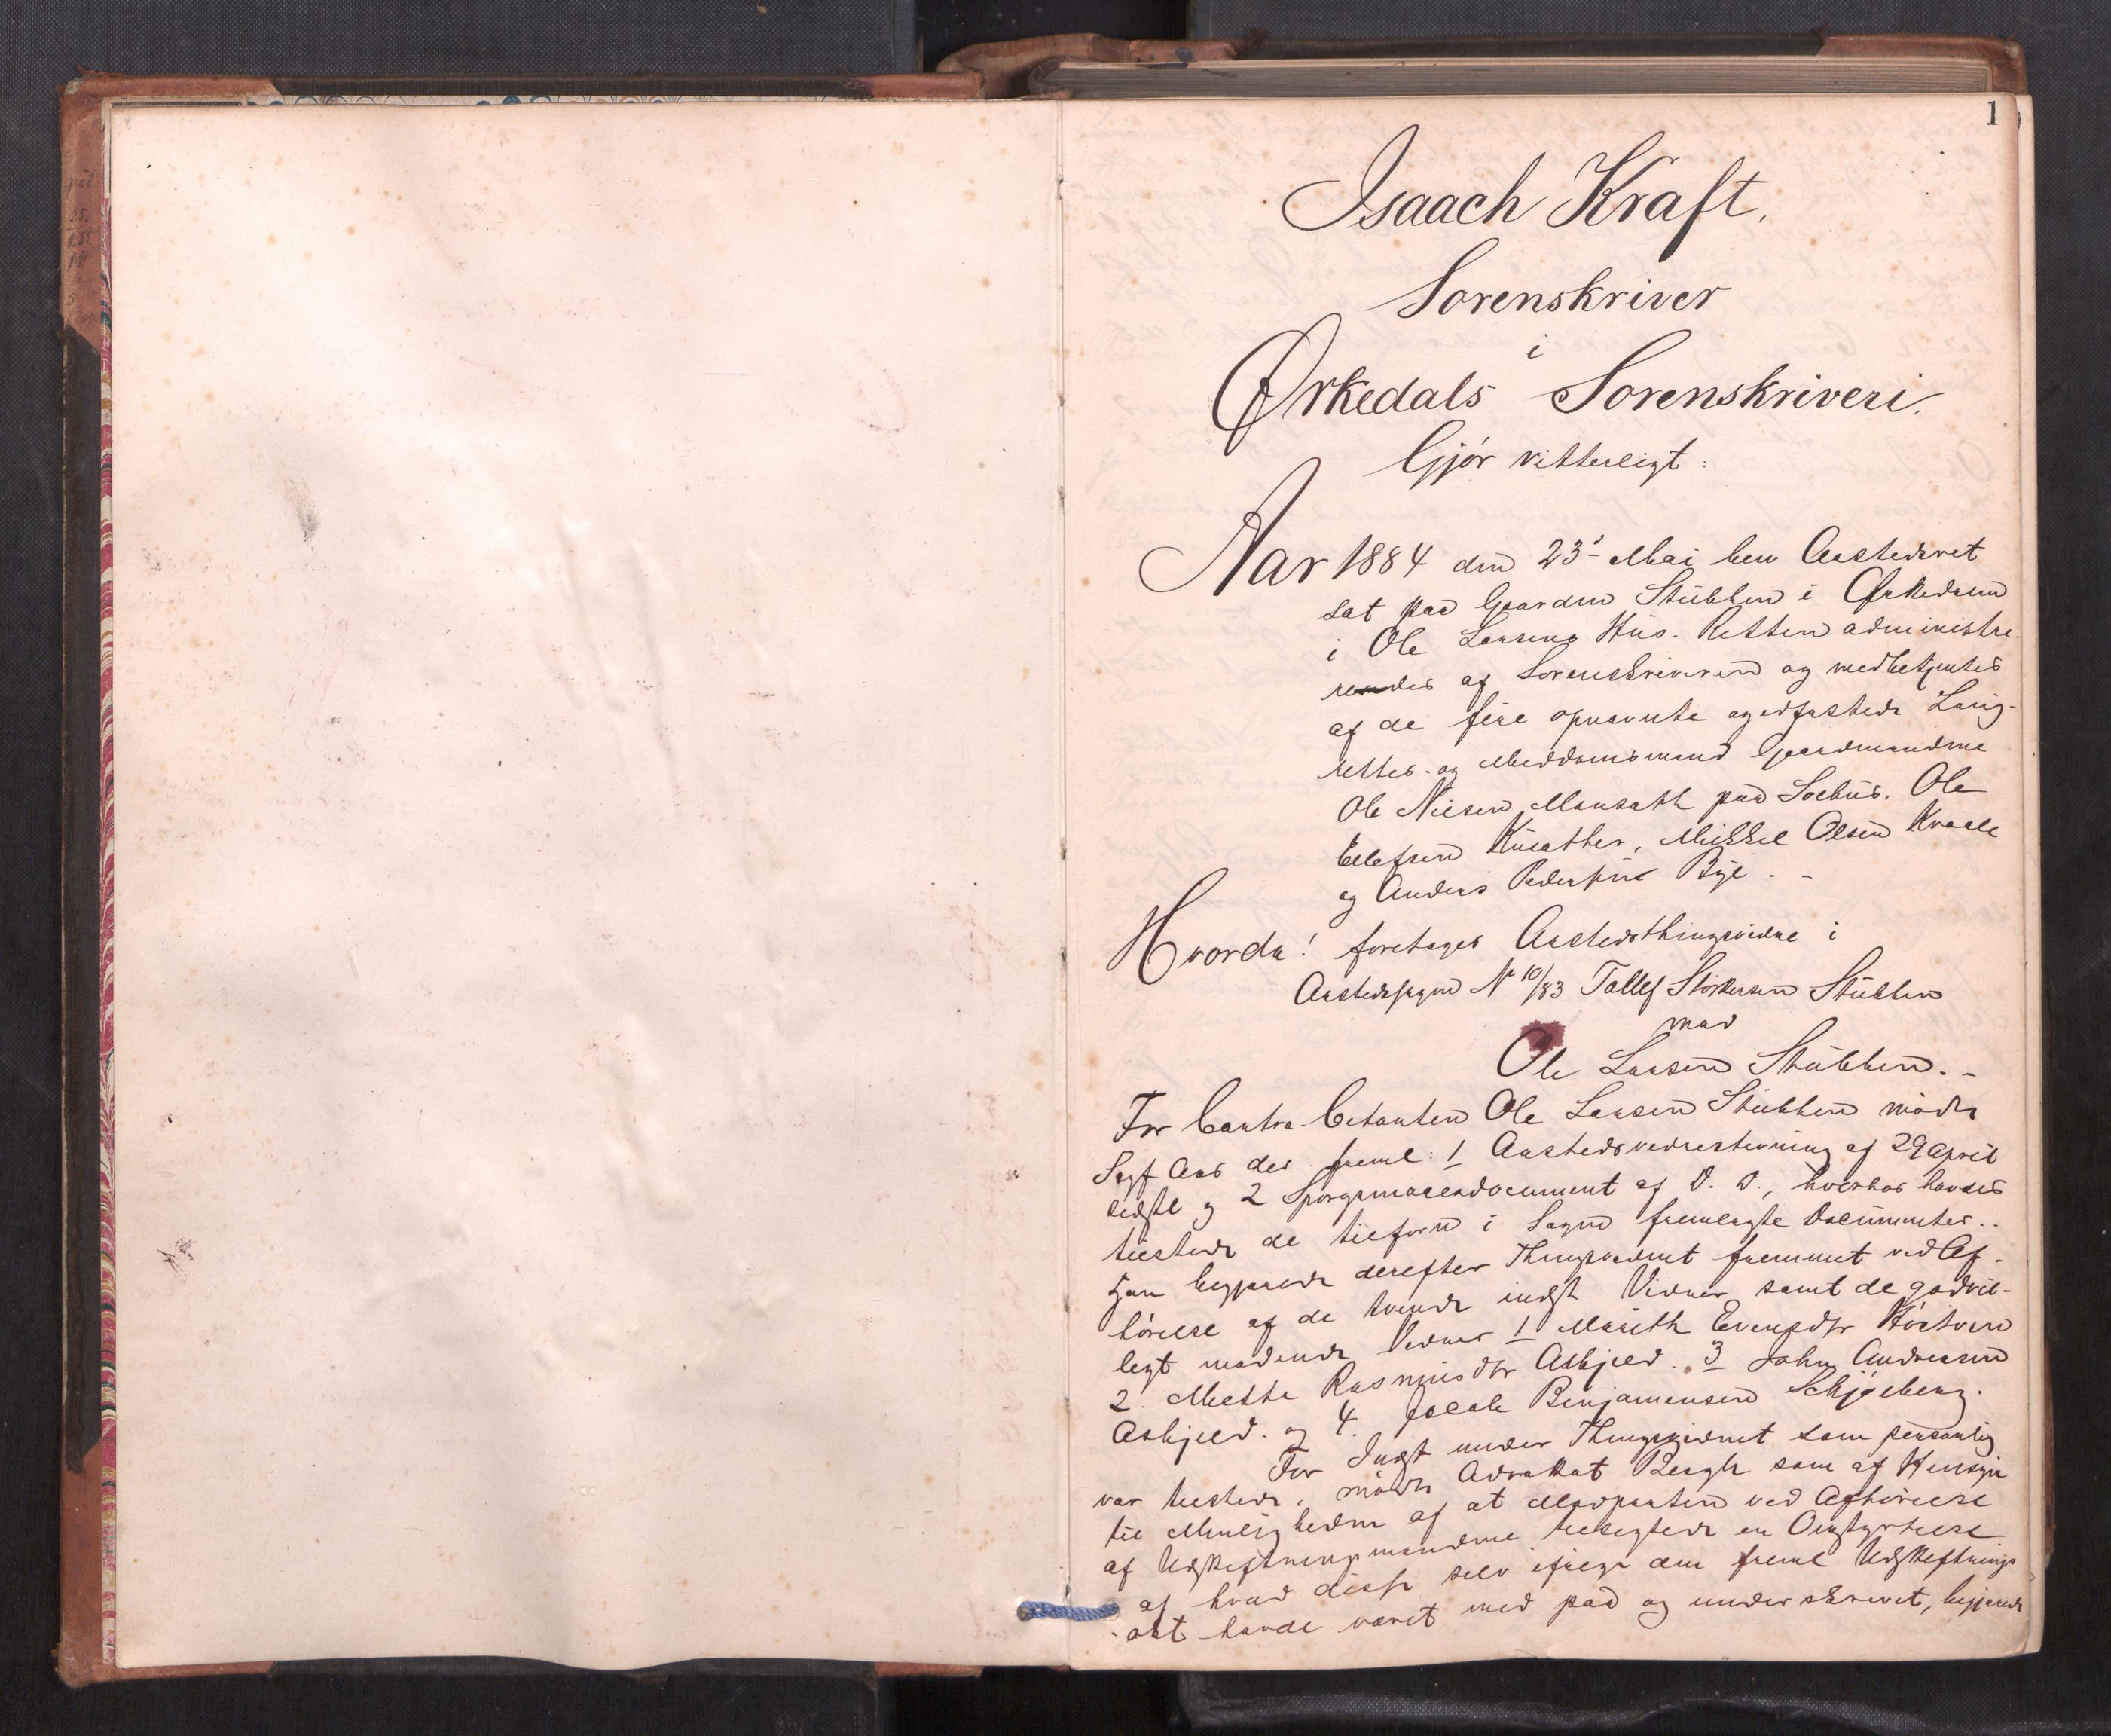 1
Isaach Kraft.
Sorenskriver
i
Ørkedals Sorenskriveri.
Gjør vitterligt:
Aar 1884 den 23de Mai blev Aastedsret
sat paa Gaarden Stubben i Ørkedalen
i Ole Larsens Hus. Retten administre-
redes af Sorenskriveren og medbetjentes
af de fire opnævnte og edfæstede Laug-
rettes- og Meddomsmænd Gaardmændene
Ole Nilsen Mansath paa Solbus, Ole
Ellefsen Kusæther, Mikkel Olsen Kvaale
og Anders Pedersen Bye. -
Hvorda! foretages Aastedsthingsvidne i
Aastedssagen N 10/83 Tollef Størkersen Stubben
mod
Ole Larsen Stubben. -
For Contra-Citanten Ole Larsen Stubben mødte
Sagf Aas der freml: 1 Aastedsvidnestevning af 29 April
sidstl og 2 Spørgsmaalsdocument af D. D., hvorhos havdes
tilstede de tilforn i Sagen fremlagte Documenter..
Han begjærede derefter Thingsvidnet fremmet ved Af-
hörelse af de tvende indst Vidner samt de godvil-
ligt mødende Vidner 1 Marith Evensdtr
2. Mette Rasmusdtr Asbjell. 3 John Andersen
Asbjell. og 4. Benjaminsen Schjølberg.
For Indst under Thingsvidnet som personlig
var tilstede, mødte Advokat Bergh som af Hensyn
til Muligheden af at Modparten ved Afhörelse
af Udskiftningsmændene tilsigtede en Omstyrtelse
af hvad disse selv ifølge den freml Udskiftnings
akt havde været med paa og underskrevet, begjærede